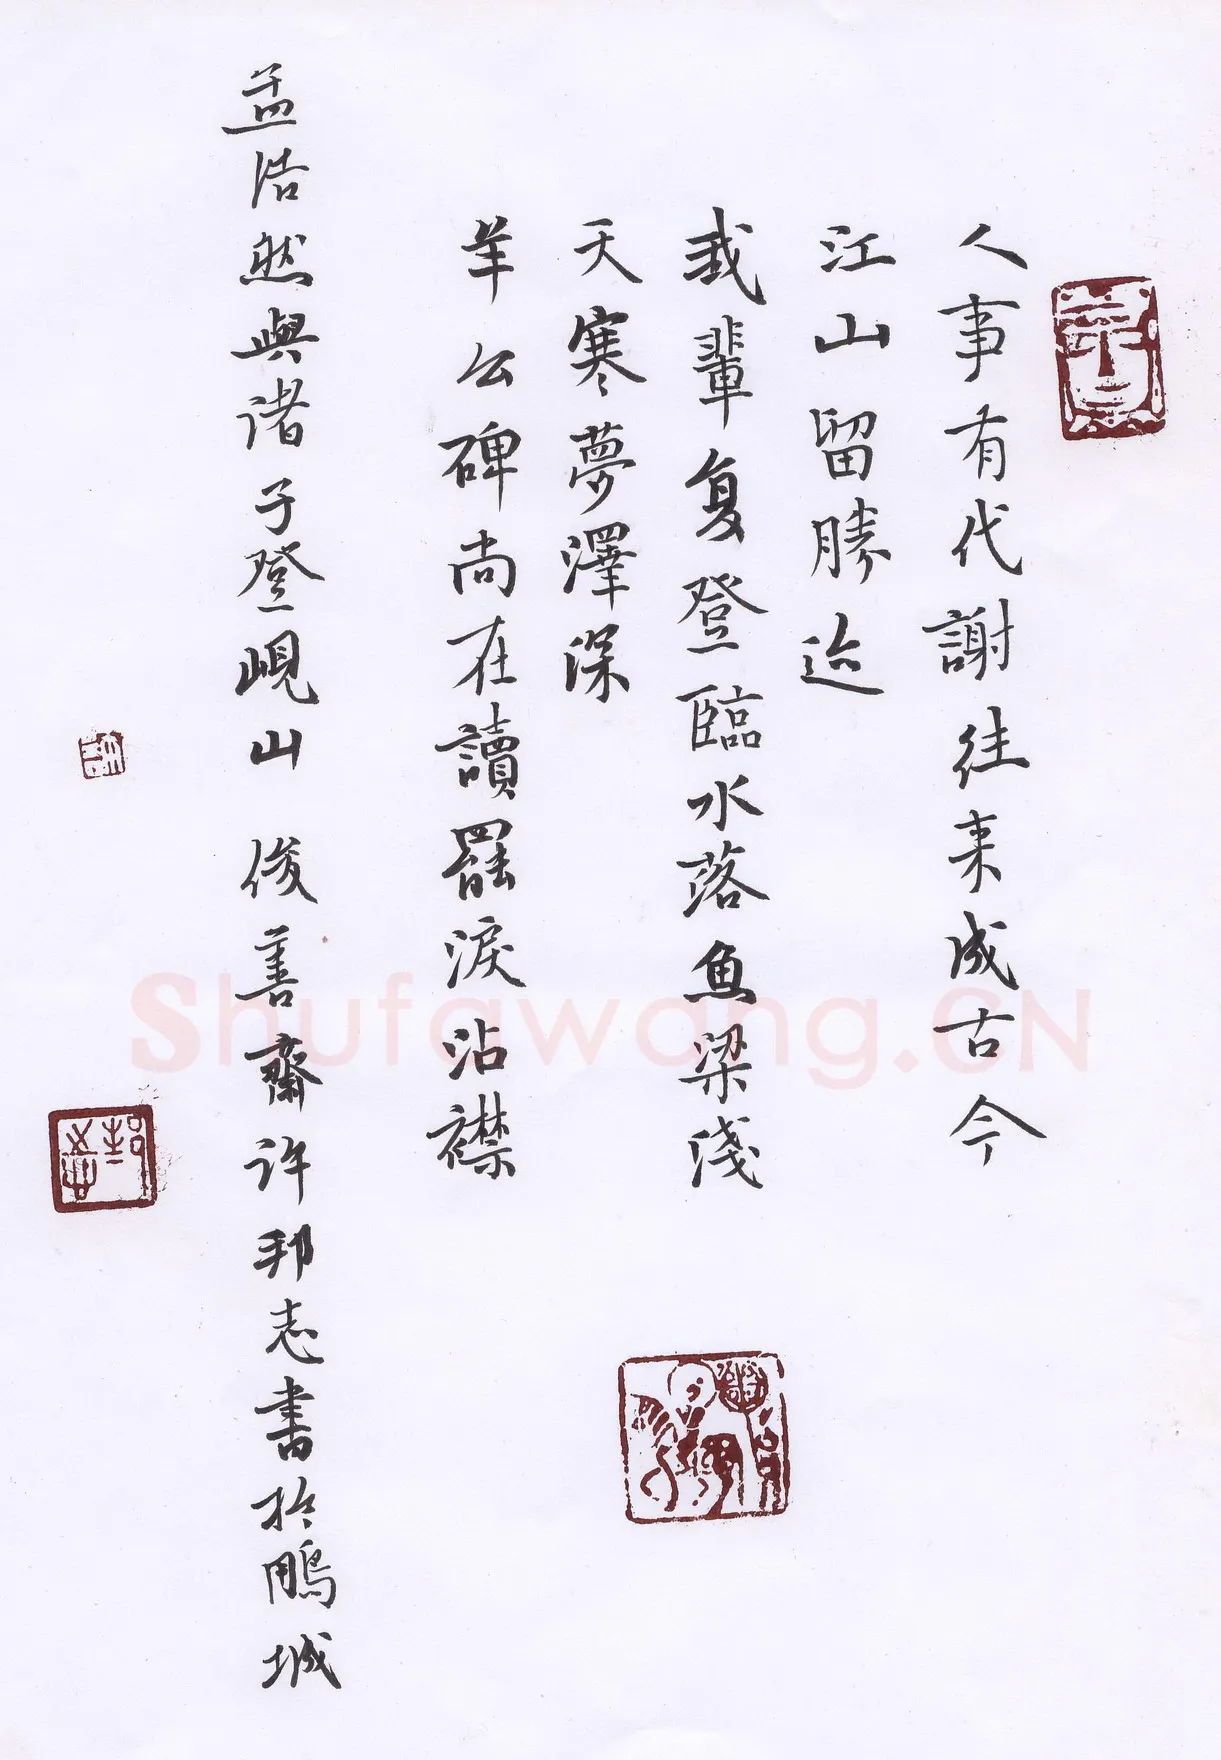 人事有代謝往来成古今
江山留勝迹
我輩复登臨水落魚梁淺
天寒夢澤深
羊公碑尚在讀罷淚沾襟
孟浩然與诸子登峴山 俊善齋许邦志書於鵬城
Shufawang.CN